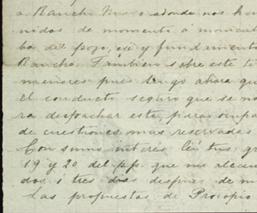 a Rancho Nuevo adonde nos han
nidos de momento a momento
ba del pozo, eje y fundamento
Rancho. Tambien sobre este te
menores pues tengo ahora que
el conducto seguro que se no
ra despachar esta, para ocupa
de cuestiones mas reservadas
Con sumo interés leí tus gr
19 y 20 del ppº que me
dos i tres dias despues de
Las propuestas de Procopio